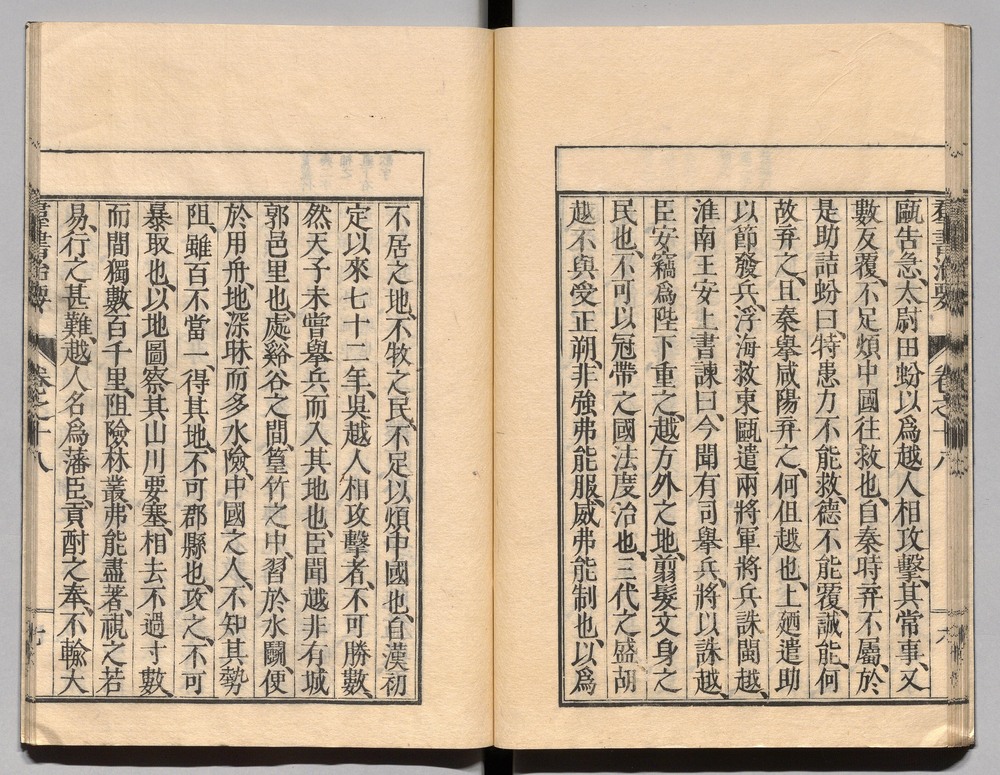 羣書治要 卷之十八 六
甌告急、太尉田蚡以爲越人相攻擊、其常事、又
數反覆、不足煩中國往救也、自秦時弃不屬、於
是助詰蚡曰、特患力不能救、德不能覆、誠能、何
故弃之、且秦擧咸陽弃之、何但越也、上廼遣助
以節發兵、浮海救東甌、遣兩將軍將兵誅閩越、
淮南王安上書諫曰、今聞有司擧兵、將以誅越、
臣安竊爲陛下重之、越方外之地、翦髮文身之
民也、不可以冠帶之國法度治也、三代之盛、胡
越不與受正朔、非強弗能服、威弗能制也、以爲
不居之地、不牧之民、不足以煩中國也、自漢初
定以來七十二年、吳越人相攻擊者、不可勝數、
然天子未嘗擧兵而入其地也、臣聞越非有城
郭邑里也、處谿谷之間、篁竹之中、習於水鬭、便
於用舟、地深昧而多水險、中國之人、不知其勢
阻、雖百不當一、得其地、不可郡縣也、攻之、不可
暴取也、以地圖察其山川要塞、相去不過寸數、
而間獨數百千里、阻險林叢、弗能盡著、視之若
易、行之甚難、越人名爲藩臣、貢酎之奉、不輸大
羣書治要 卷之十八 七